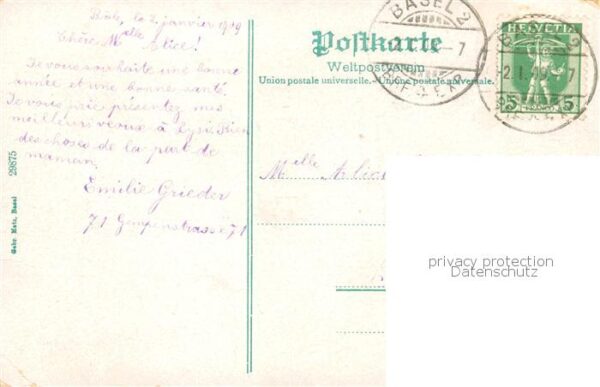 Bâle, le 2 janvier 1919
Chère Mlle Alice!
Je vous souhaite une bonne
année et une bonne santé.
Je vous prie présentez mes
meilleurs vœux à Lysi. Bien
des choses de la part de
maman.
Emilie Grieder
71 Gempenstrasse 71
29875
Gebr. Metz, Basel
Postkarte
Weltpostverein
Union postale universelle. – Unione postale universale.
BASEL 2
7
BRF. EXP.
HELVETIA
2. I. 19. 7
5 5
Mlle Alice
privacy protection
Datenschutz